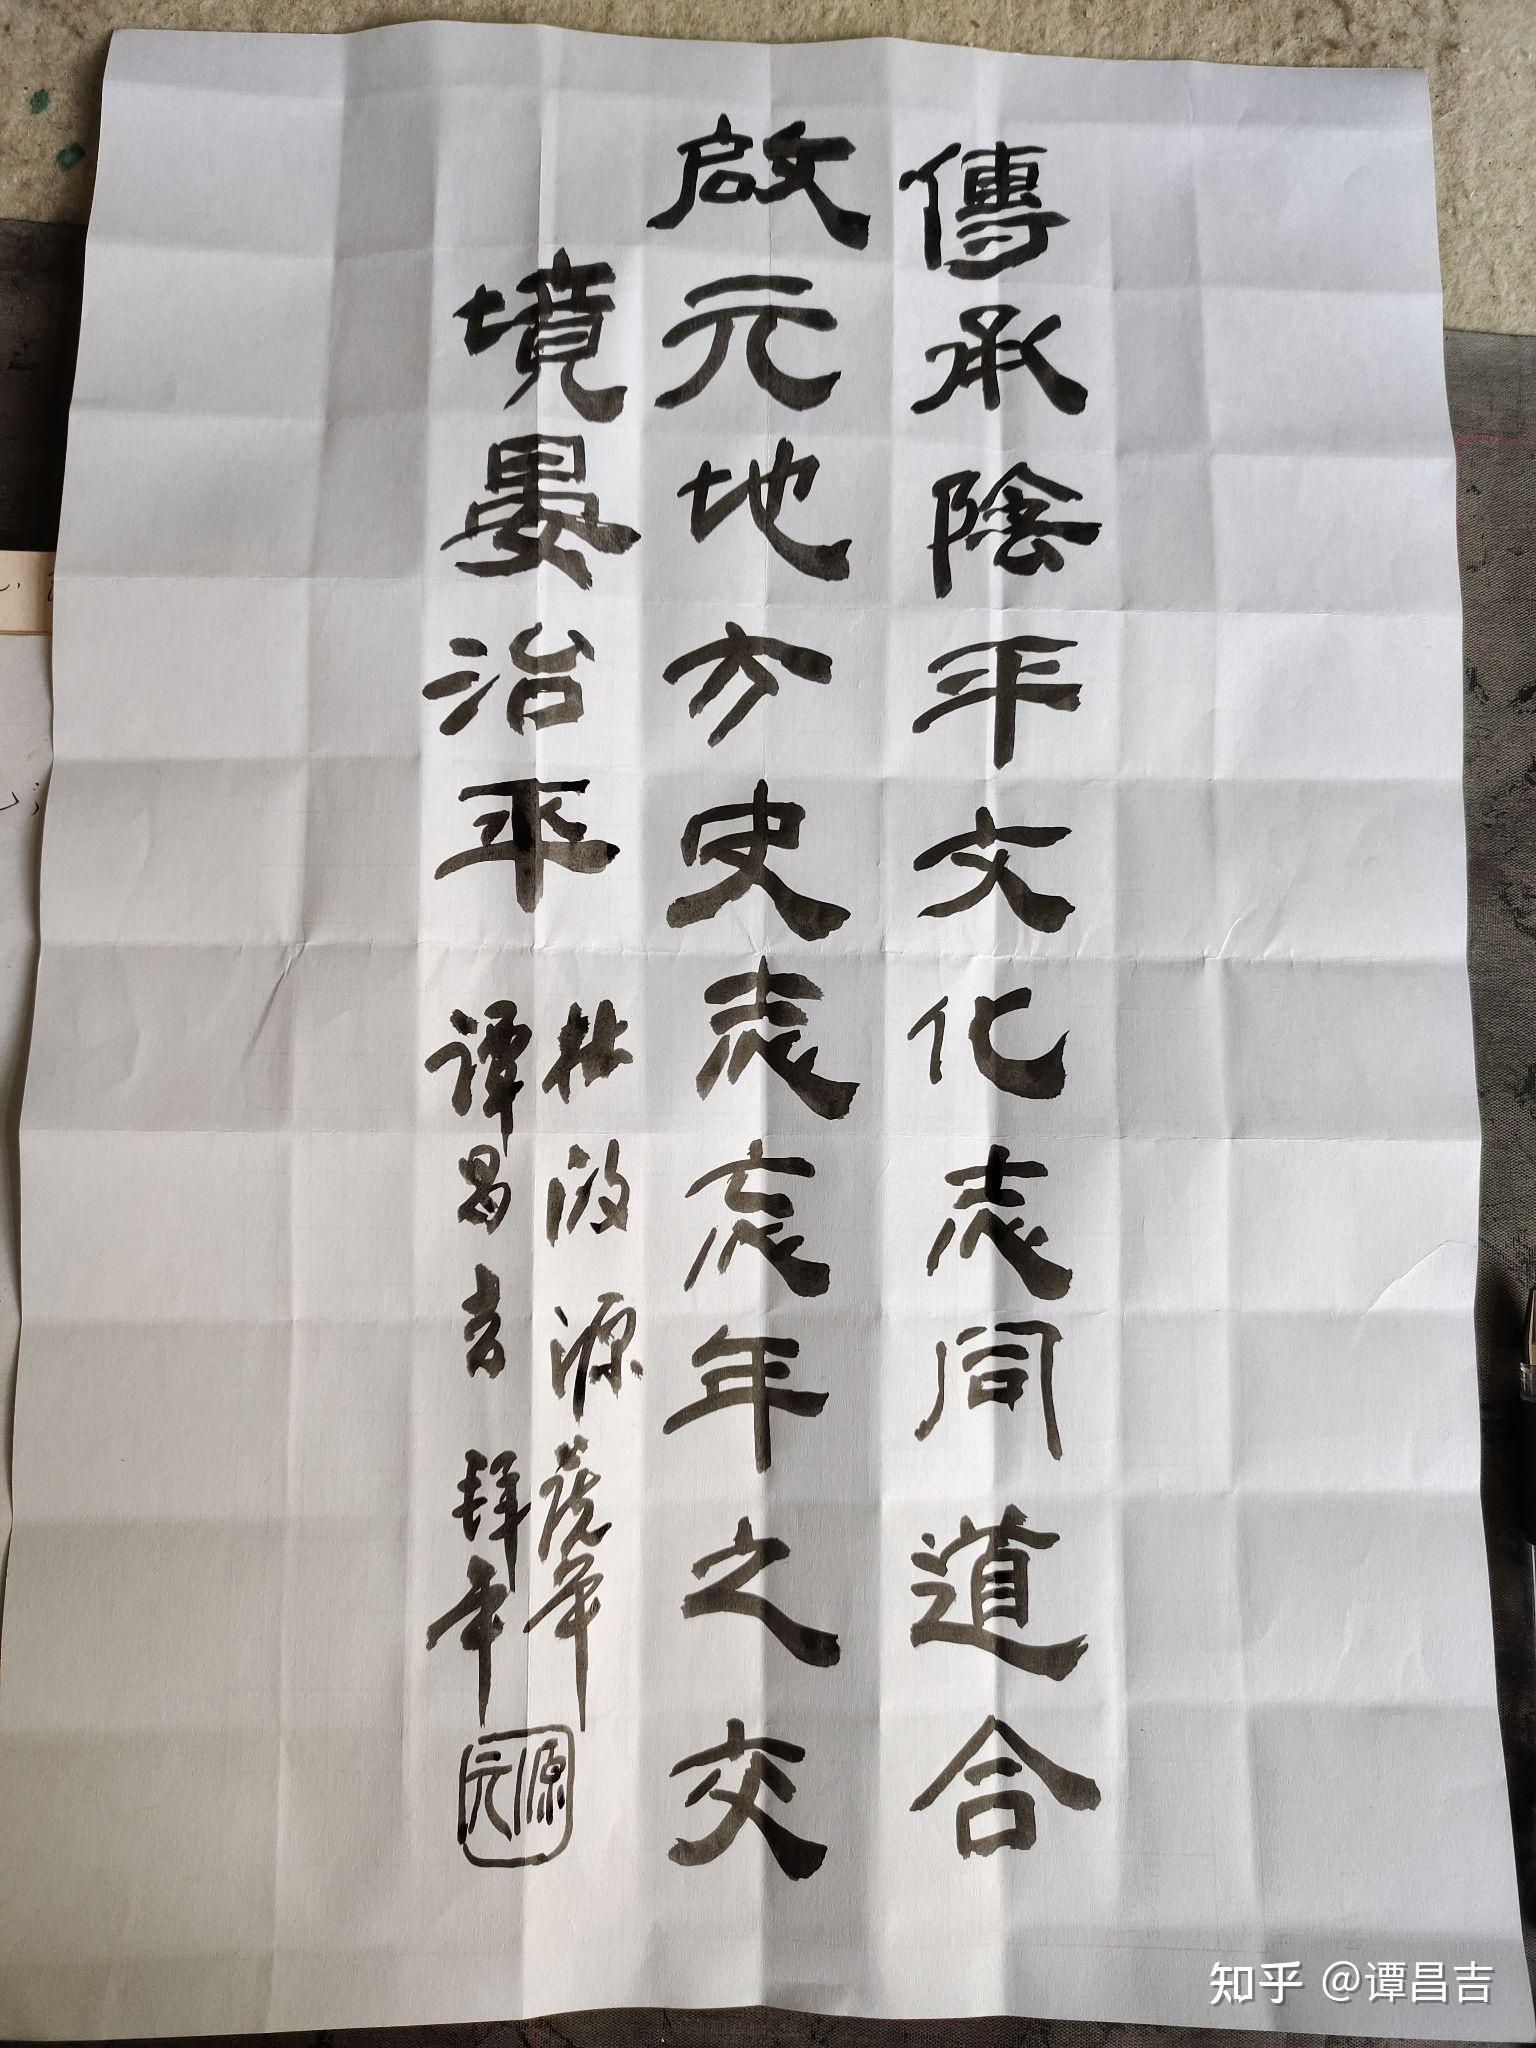 傳承陰平文化志同道合
啟元地方史志忘年之交
境晏治平
谭昌吉拜年
源元
知乎 @谭昌吉